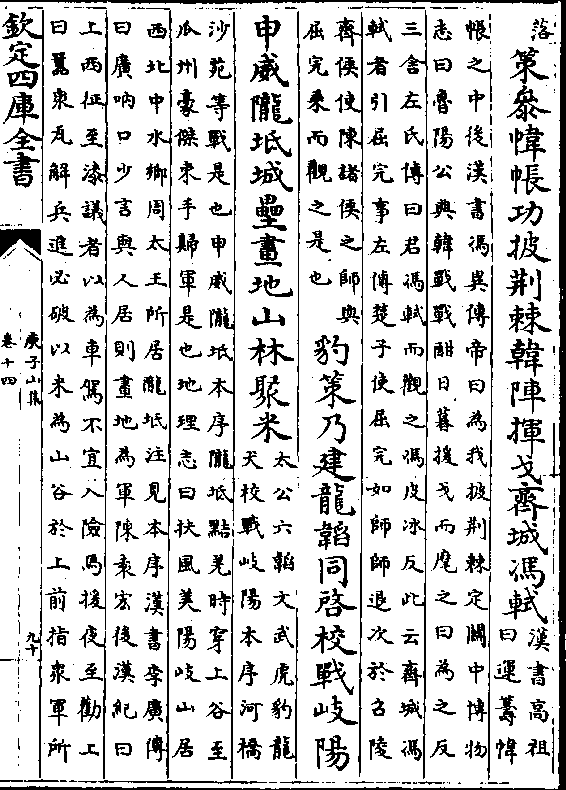 落
策參幃帳功披荆棘韓陣揮戈齊城馮軾
漢書高祖
曰運籌幃
帳之中後漢書馮異傳帝曰為我披荆棘定闗中博物
志曰魯陽公與韓戰戰酣日暮援戈而麾之曰為之反
三舍左氏傳曰君馮軾而觀之馮皮冰反此云齊城馮
軾者引屈完事左傳楚子使屈完如師師退次於召陵
齊侯使陳諸侯之師與
屈完乘而觀之是也
豹策乃建龍韜同啓校戰岐陽
申威隴坻城壘畫地山林聚米
太公六韜文武虎豹龍
犬校戰岐陽本序河橋
沙苑等戰是也申威隴坻本序隴坻點羌時穿上谷至
瓜州豪傑束手歸軍是也地理志曰扶風美陽岐山居
西北中水鄉周太王所居隴坻注見本序漢書李廣傳
曰廣呐口少言與人居則畫地為軍陳袁宏後漢紀曰
上西征至漆議者以為車駕不宜入險馬援夜至勸上
曰囂衆瓦解兵進必破以米為山谷於上前指衆軍所
欽定四庫全書
庚子山集
卷十四
九十